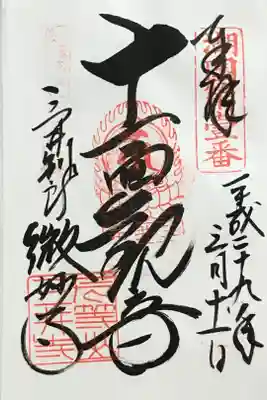 奉拝
平成二十九年
三月十一日
十一面観音
三井別所
微妙寺